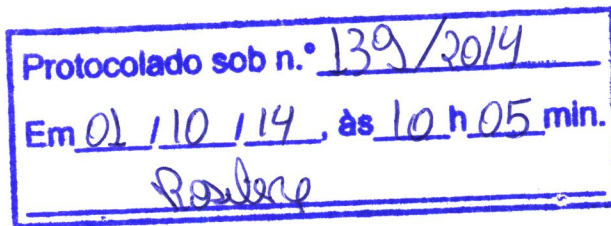 Protocolado sob n.º 139/2014
Em 01 / 10 / 14, às 10 h 05 min.